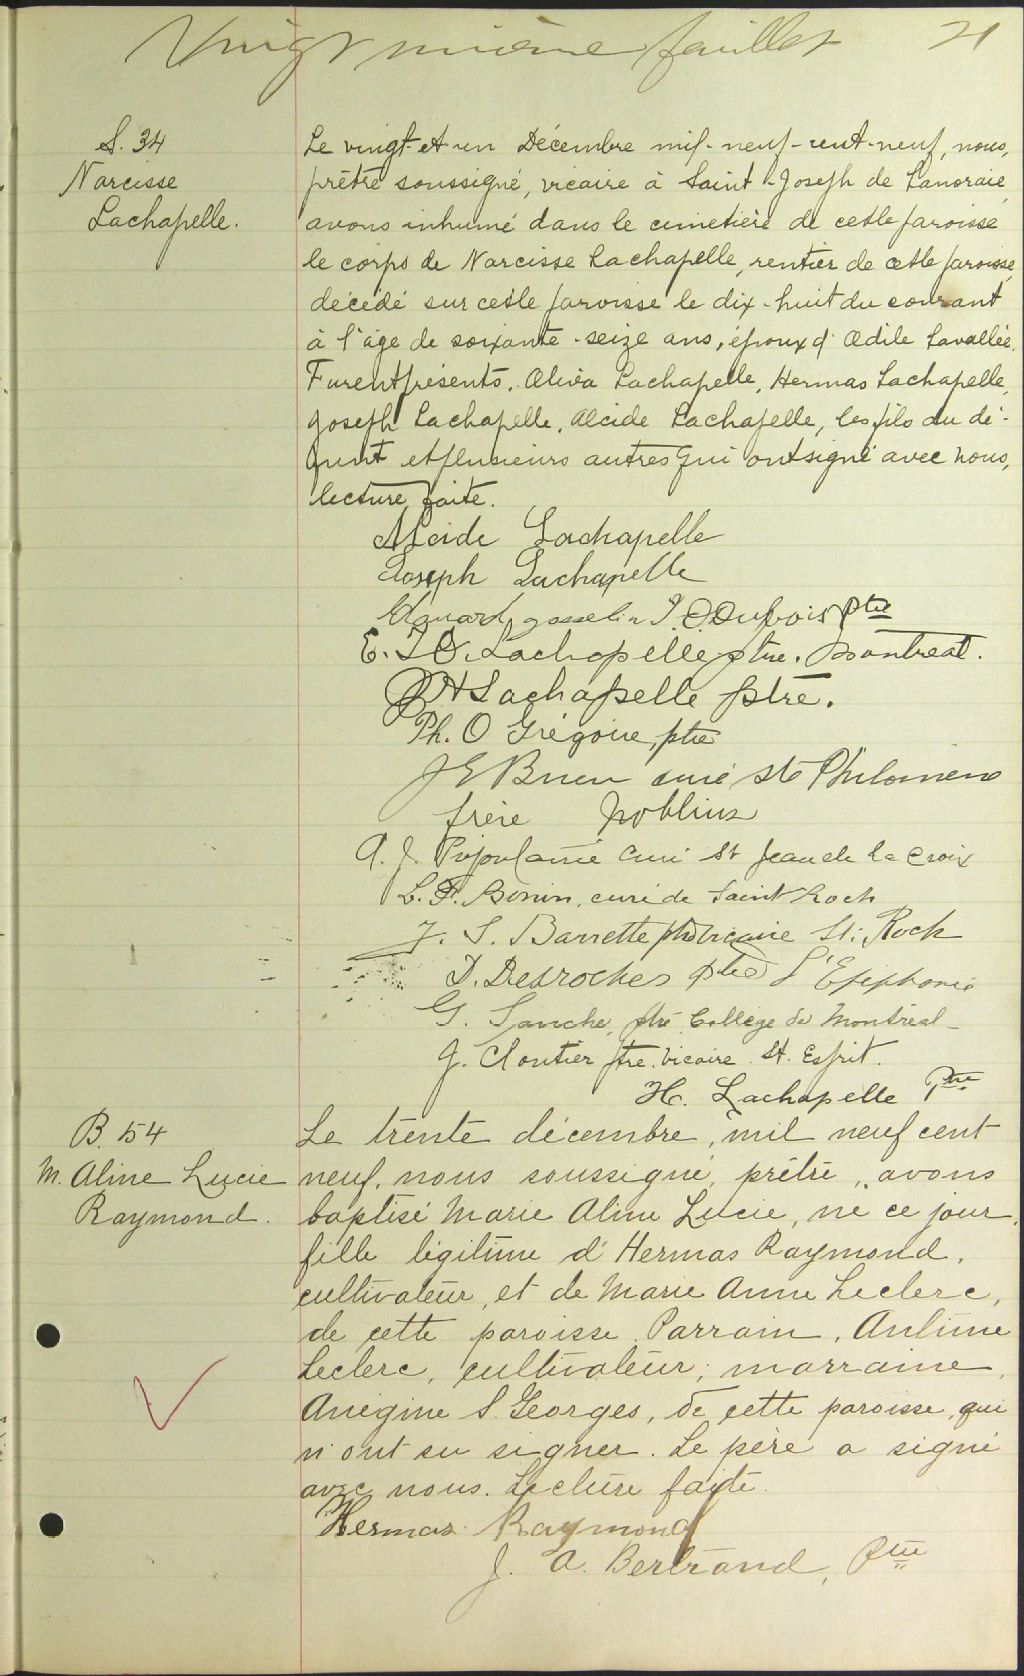 Vingt unième feuillet 21
S. 34
Narcisse
Lachapelle.
Le vingt-et-un Décembre mil-neuf-cent-neuf, nous,
prêtre soussigné, vicaire à Saint-Joseph de Lanoraie,
avons inhumé dans le cimetière de cette paroisse
le corps de Narcisse Lachapelle, rentier de cette paroisse,
décédé sur cette paroisse le dix-huit du courant
à l'âge de soixante-seize ans, époux d'Odile Lavallée.
Furent présents, Oliva Lachapelle, Hermas Lachapelle,
Joseph Lachapelle, Alcide Lachapelle, les fils du dé-
funt et plusieurs autres qui ont signé avec nous,
lecture faite.
Alcide Lachapelle
Joseph Lachapelle
gosselin J. O. Dubois Ptre
E. J. O. Lachapelle ptre. Montreal.
H Lachapelle ptre.
Ph. O Grégoire, ptre
J E curé Ste Philomène
frère
A. J. curé St Jean de la Croix
L. F. Bonin, curé de Saint Roch
J. S. Barrette ptre vicaire St. Roch
D. Desroches ptre L'Epiphanie
G. Sanche, ptre Collège de Montréal
J. Cloutier ptre. Vicaire St. Esprit.
H. Lachapelle Ptre
B. 54
M. Aline Lucie
Raymond.
Le trente décembre, mil neuf cent
neuf, nous soussigné, prêtre, avons
baptisé Marie Aline Lucie, né ce jour,
fille légitime d'Hermas Raymond,
cultivateur, et de Marie Anne Leclerc,
de cette paroisse. Parrain, Antime
Leclerc, cultivateur; marraine,
S. Georges, de cette paroisse, qui
n'ont su signer. Le père a signé
avec nous. Lecture faite.
Hermas Raymond
J. A. Bertrand, Ptre